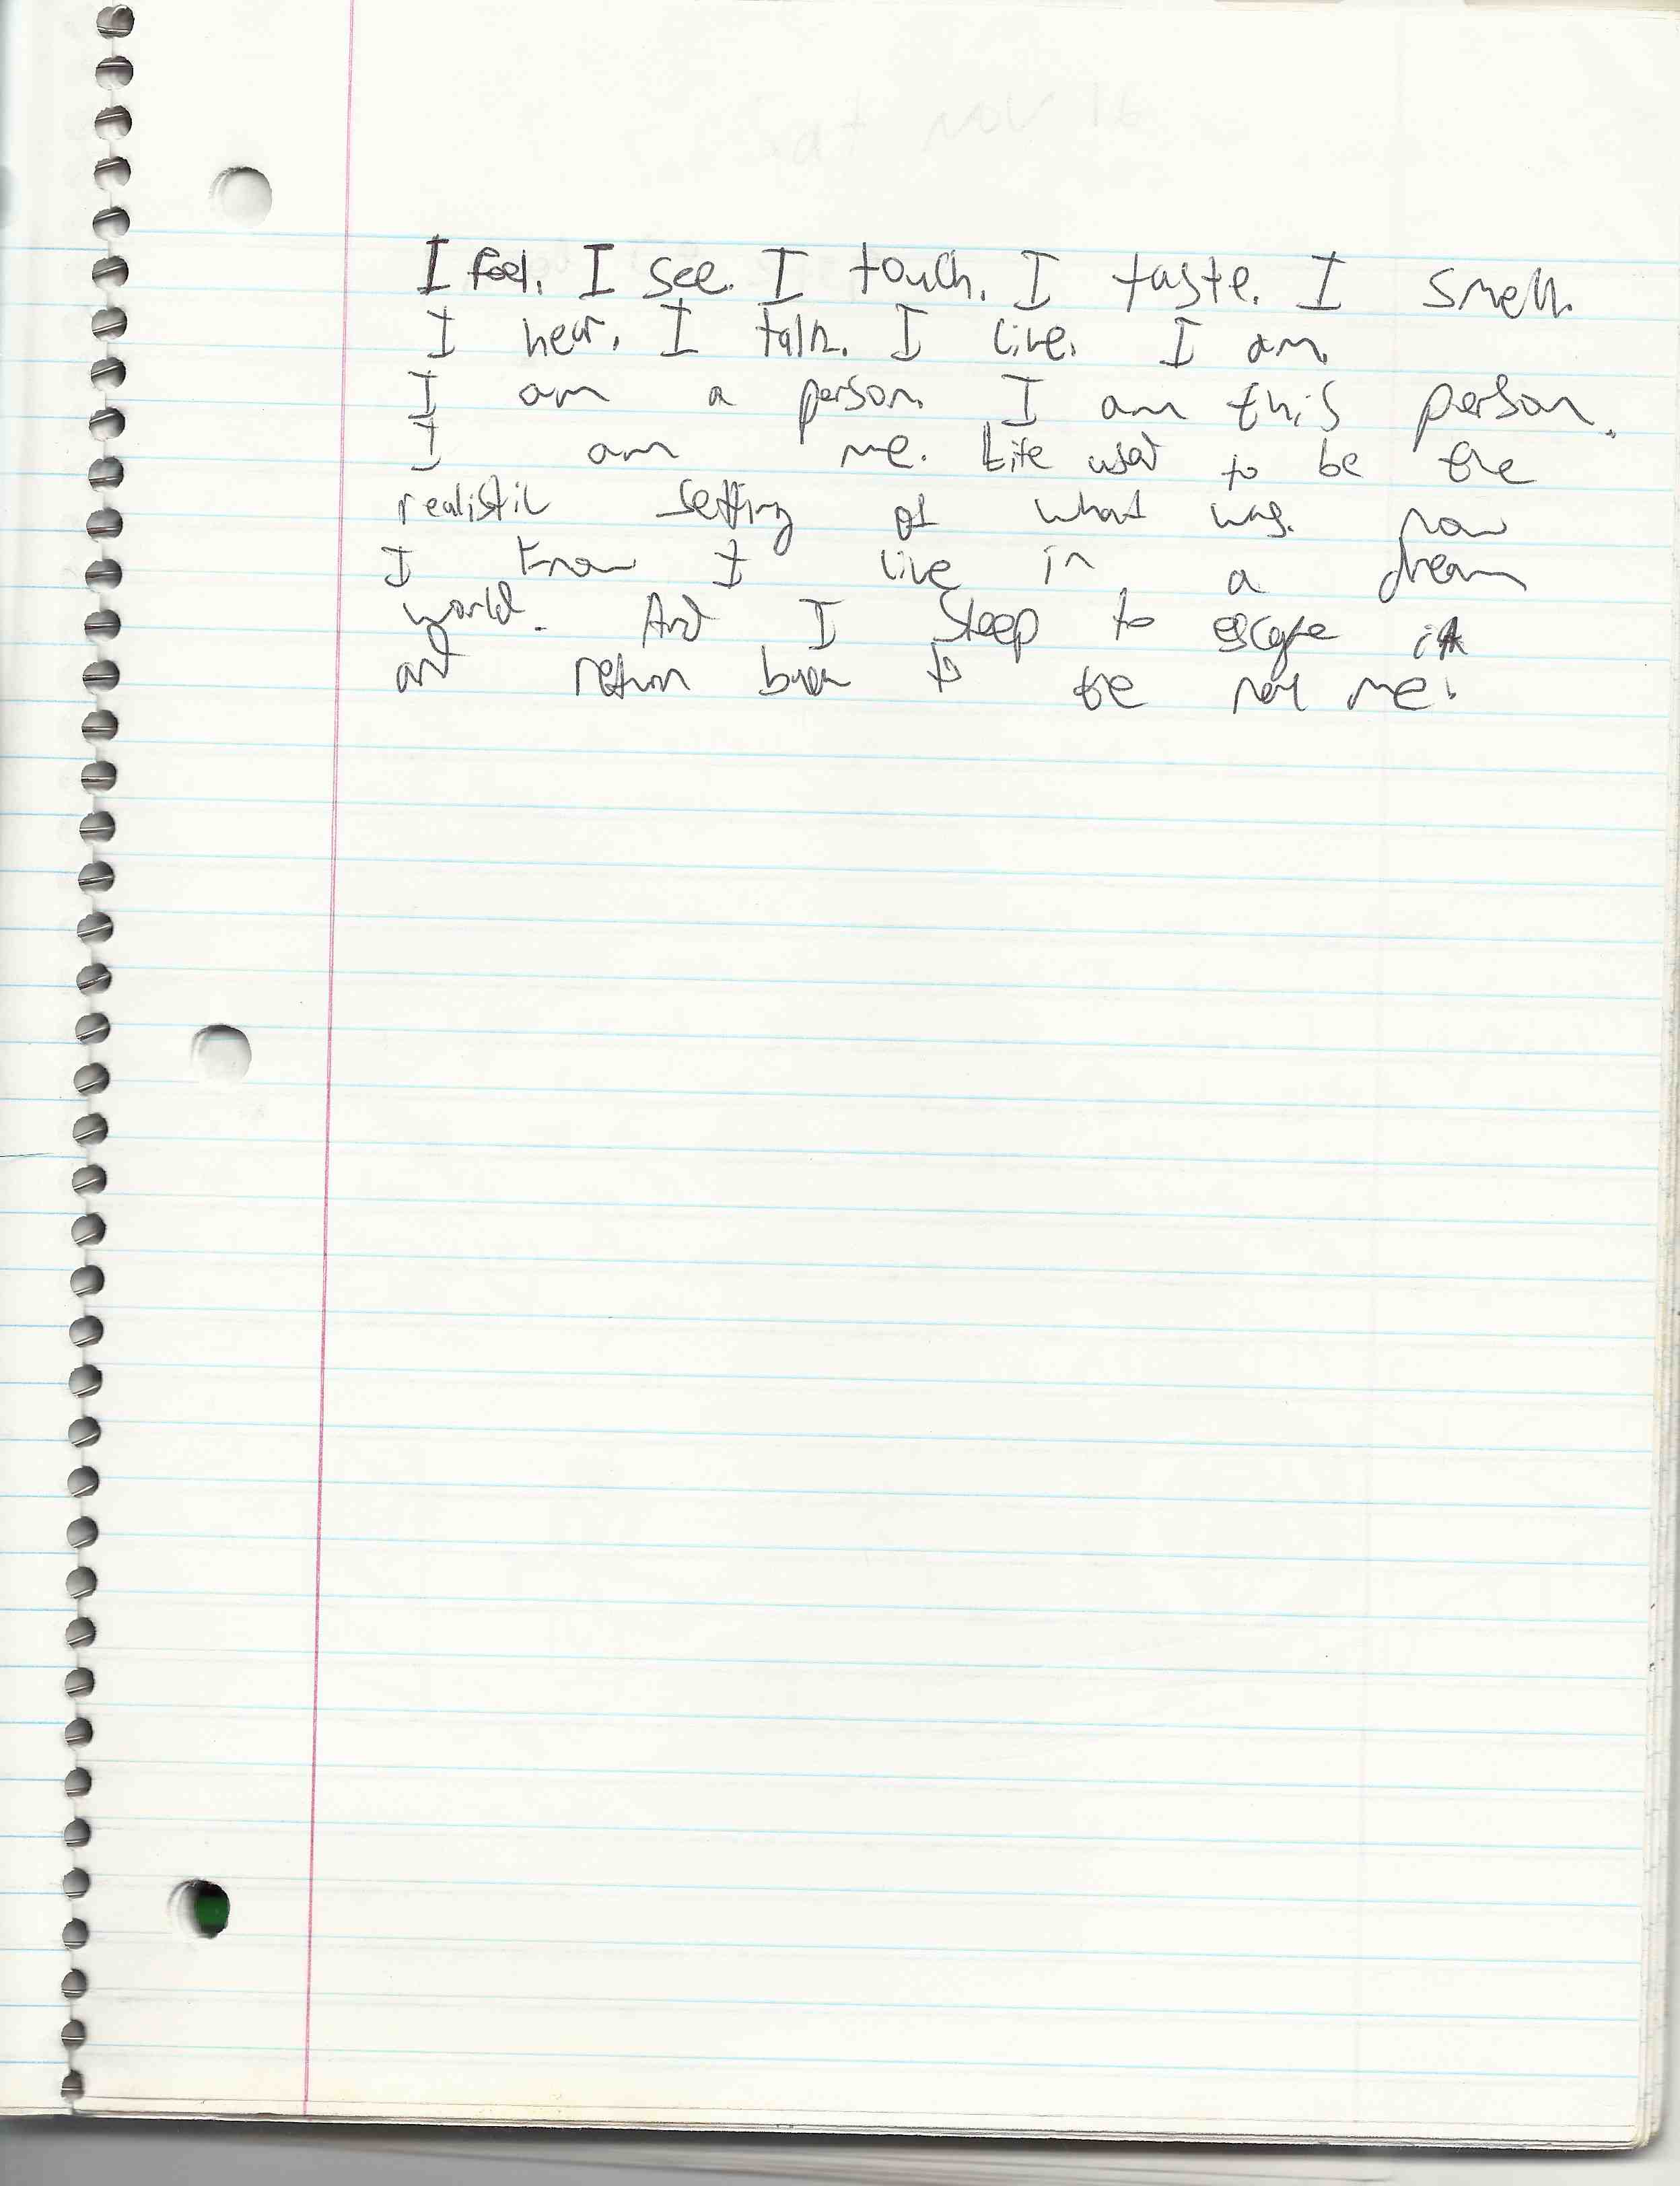 I feel. I see. I touch. I taste. I smell.
I hear. I talk. I live. I am.
I am a person. I am this person.
I am me. Life used to be the
realistic setting of what was. now
I know I live in a dream
world. And I sleep to escape it
and return back to the me.